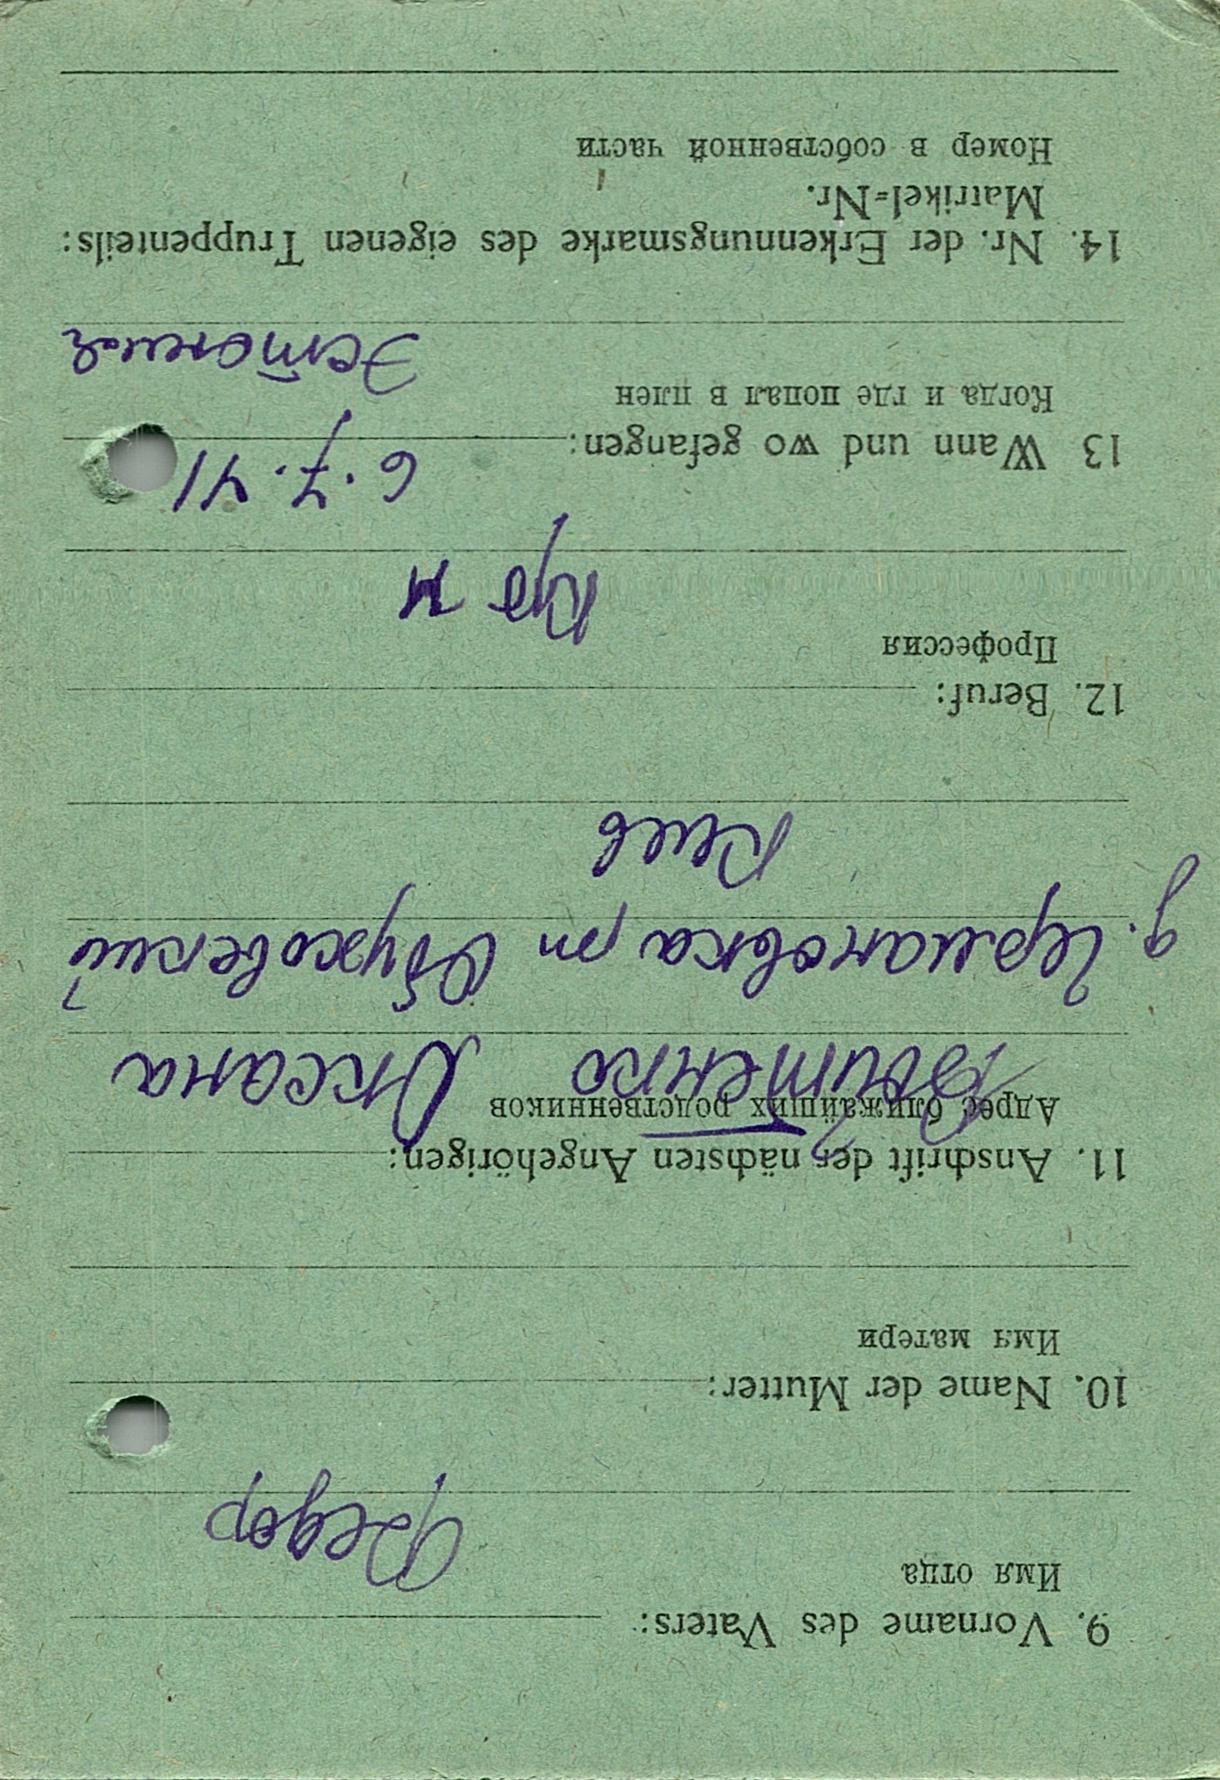 9. Vorname des Vaters:
Имя отца
Федор
10. Name der Mutter:
Имя матери
11. Anschrift der nächsten Angehörigen:
Адрес ближайших родственников
Оксана
д. Германовка рн Обуховский
Киев
12. Beruf:
Профессия
13 Wann und wo gefangen:
6.7.41
Когда и где попал в плен
Эстония
14. Nr. der Erkennungsmarke des eigenen Truppenteils:
Matrikel=Nr.
Номер в собственной части